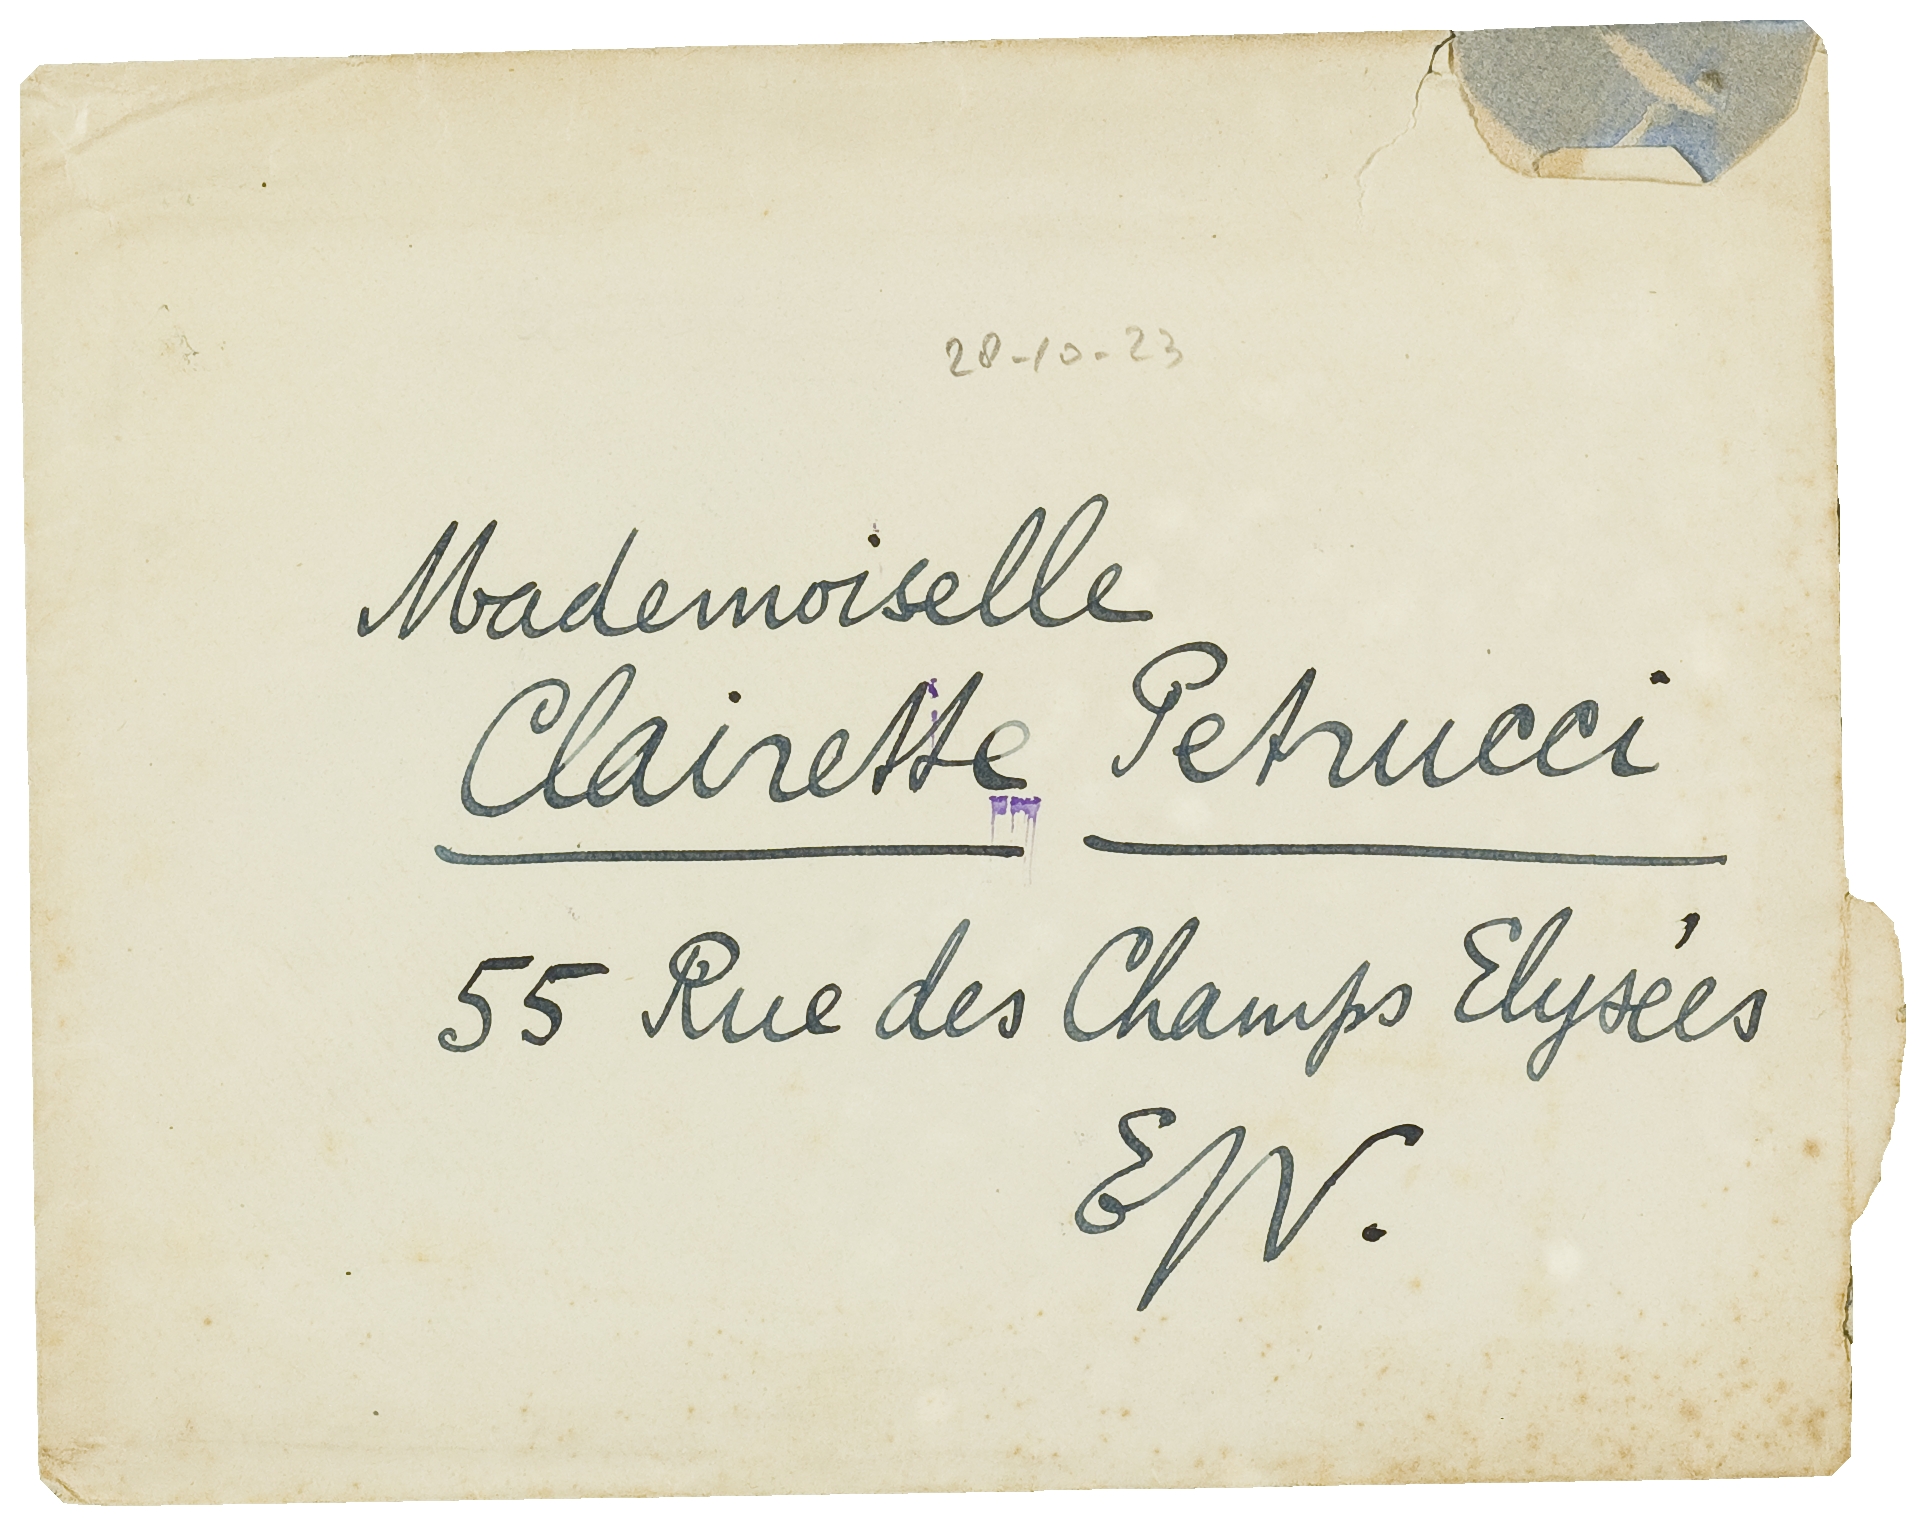 28-10-23
Mademoiselle
Clairette Petrucci
55 Rue des Champs Elysées
E/V.